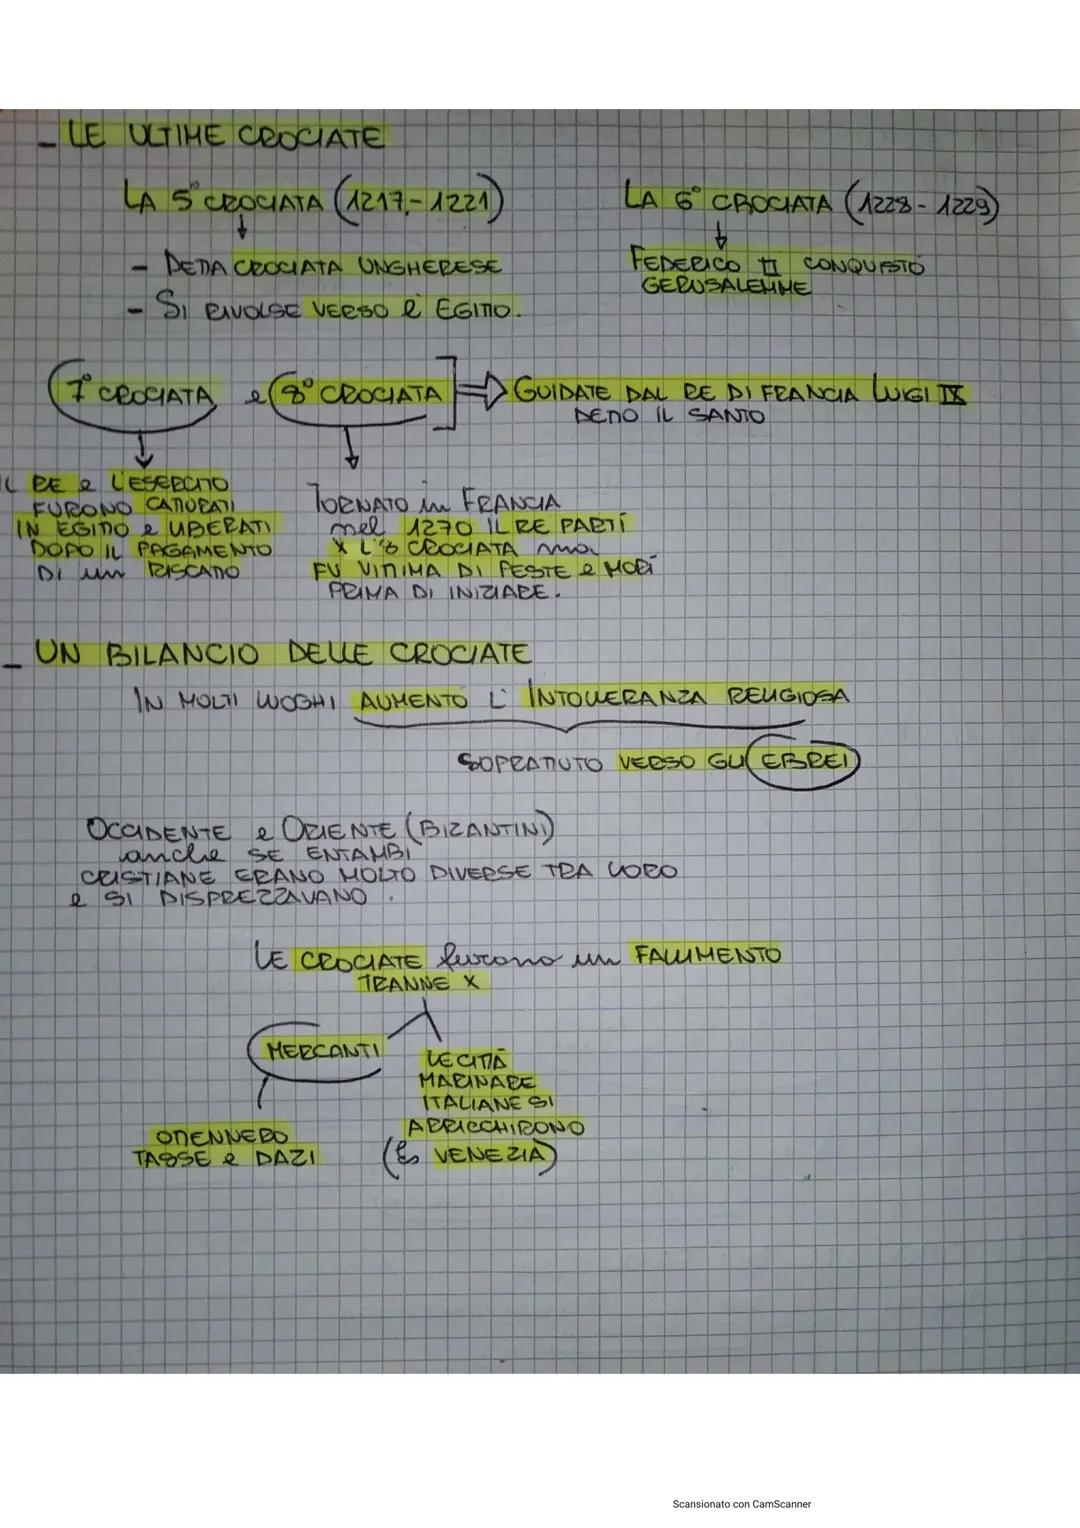 - LE ULTIME CROCIATE
LA 5° CROCIATA (1217-1221)
- DETTA CROCIATA UNGHERESE
- SI RIVOLSE VERSO L'EGITTO.
LA 6° CROCIATA (1228-1229)
FEDERICO II CONQUISTÒ
GERUSALEMME
7° CROCIATA e 8° CROCIATA] ⇒ GUIDATE DAL RE DI FRANCIA LUIGI IX
DETTO IL SANTO
IL RE e L'ESERCITO
FURONO CATTURATI
IN EGITTO e LIBERATI
DOPO IL PAGAMENTO
DI un RISCATTO
TORNATO in FRANCIA
nel 1270 IL RE PARTÍ
X L'8 CROCIATA ma
FU VITTIMA DI PESTE e MORÍ
PRIMA DI INIZIARE.
- UN BILANCIO DELLE CROCIATE
IN MOLTI LUOGHI AUMENTÒ L'INTOLLERANZA RELIGIOSA
SOPRATTUTTO VERSO GLI EBREI
OCCIDENTE e ORIENTE (BIZANTINI)
anche SE ENTAMBI
CRISTIANE ERANO MOLTO DIVERSE TRA LORO
e SI DISPREZZAVANO.
LE CROCIATE furono un FALLIMENTO
TRANNE X
MERCANTI
OTTENNERO
TASSE e DAZI
LE CITTÀ
MARINARE
ITALIANE SI
ARRICCHIRONO
(Es VENEZIA)
Scansionato con CamScanner